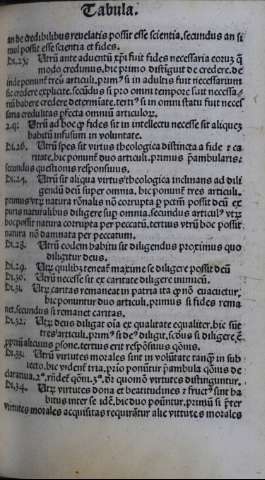 Tabula.
an de credibilibus reuelatis possit esse scientia, secundus an si
mul possit esse scientia et fides.
Di.23. Utrũ ante aduentũ xp̃i fuit fides necessaria eorũ q̃
modo credimus, hic primo distiguit de credere, de
inde ponunt̃ treũ articuli, primꝰ si in adultis fuit necessarium
fic credere explicite, secũdus si pro omni tempore fuit necessa
riũ habere credere determinate, tertiꝰ si in omni statu fuit neces
saria credulitas p̃fecta omniũ articulorũ.
24. Utrũ ad hoc ꝙ fides sit in intellectu necesse sit aliquẽ
habitũ infusum in voluntate.
Di.26. Utrũ spes sit virtus theologica distincta a fide ⁊ ca
ritate, hic ponunt̃ duo articuli, primus p̃ambularis,
secundus questionis responsiuus.
Di.24. Utrũ sit aliqua virtus theologica inclinans ad dili
gendũ deũ super omnia, hic ponunt̃ tres articuli,
primus vtrũ natura rõnalis nõ corrupta ꝑ pctm̃ possit deũ ex
puris naturalibus diligere sup omnia, secundus articulꝰ vtrũ
hoc possit natura corrupta per peccatũ, tertius vtrũ hoc possit
natura nõ damnata per peccatum.
Di.28. Utrũ eodem habitu sit diligendus proximus quo
diligitur deus.
Di.29. Utrũ quilibꝫ teneat̃ maxime se diligere possit deũ
Di.30. Utrũ necesse sit ex caritate diligere inimicũ.
Di.31. Utrũ caritas remaneat in patria ita ꝙ nõ euacuetur,
hic ponuntur duo articuli, primus si fides rema
net, secundus si remanet caritas.
Di.32. Utrũ deus diligat oĩa ex equalitate equaliter, hic sũt
tres articuli, primꝰ si deꝰ diligit, scđus si diligere ẽ
tertius erit respõsiuus q̃onis.
Di.33. Utrũ virtutes morales sint in volũtate tanq̃ in sub
iecto, hic vidẽt̃ tria, prio ponũtur p̃ambula q̃onis de
claranda, 2ꝰ. rñdet̃ q̃oni, 3ꝰ. quomõ virtutes distinguntur.
Di.34. Utrũ virtutes dona et beatitudines ⁊ fructꝰ sint ha
bitus inter se idẽ, hic duo ponũtur, primũ si p̃ter
virtutes morales acquisitas requirãtur alie virtutes morales